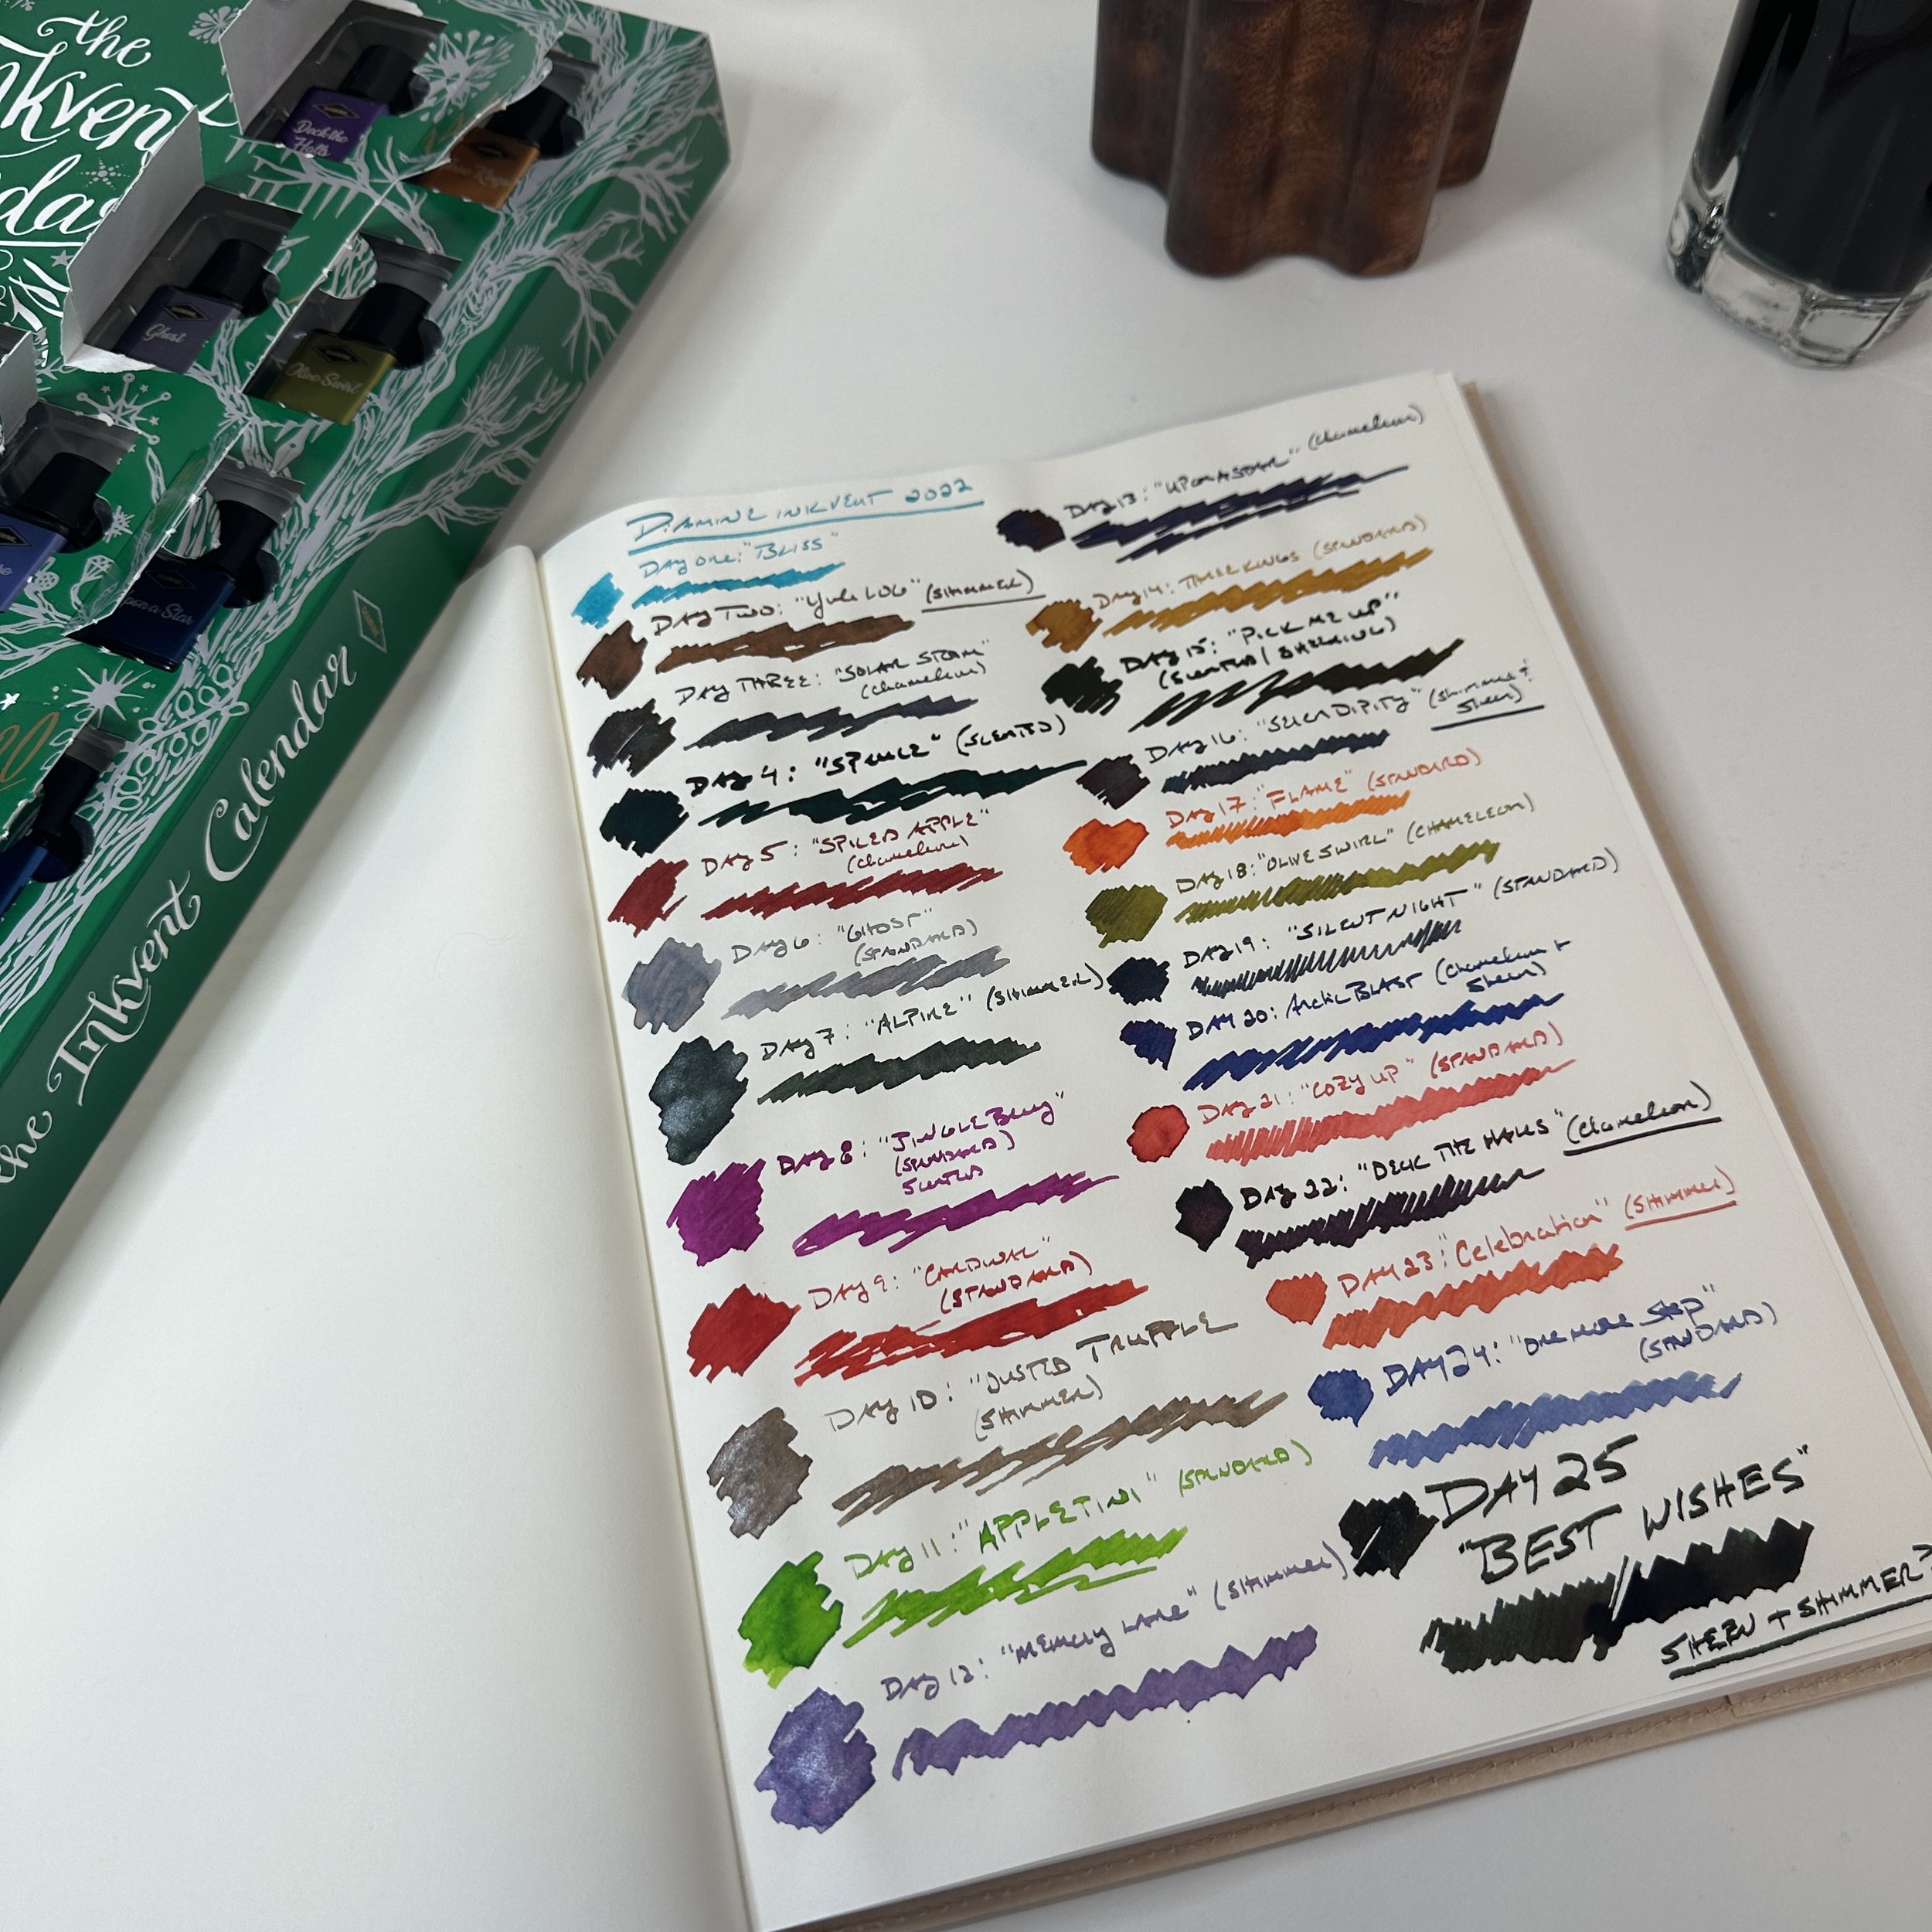 the
Inkvent
Deck the
Halls
Ghost
Olive Swirl
upon a Star
20
the Inkvent Calendar
DIAMINE INKVENT 2022
DAY ONE: "BLISS"
DAY TWO: "YULE LOG" (SHIMMER)
DAY THREE: "SOLAR STORM"
(Chameleon)
DAY 4: "SPRUCE" (SCENTED)
DAY 5: "SPICED APPLE"
(Chameleon)
DAY 6: "GHOST"
(STANDARD)
DAY 7: "ALPINE" (SHIMMER)
DAY 8: "JINGLE Berry"
(STANDARD)
SCENTED
DAY 9: "CARDINAL"
(STANDARD)
DAY 10: "DUSTED TRUFFLE
(SHIMMER)
DAY 11: "APPLETINI" (STANDARD)
DAY 12: "MEMORY LANE" (SHIMMER)
DAY 13: "UPON A STAR" (Chameleon)
DAY 14: THREE KINGS (STANDARD)
DAY 15: "PICK ME UP"
(SCENTED / SHEENING)
DAY 16: "SERENDIPITY" (SHIMMER +
Sheen)
DAY 17: "FLAME" (STANDARD)
DAY 18: "OLIVE SWIRL" (CHAMELEON)
DAY 19: "SILENT NIGHT" (STANDARD)
DAY 20: Arctic BLAST (Chameleon +
Sheen)
DAY 21: "COZY UP" (STANDARD)
DAY 22: "DECK THE HALLS" (Chameleon)
DAY 23: "Celebration" (SHIMMER)
DAY 24: "ONE MORE SLEEP"
(STANDARD)
DAY 25
"BEST WISHES"
SHEEN + SHIMMER?